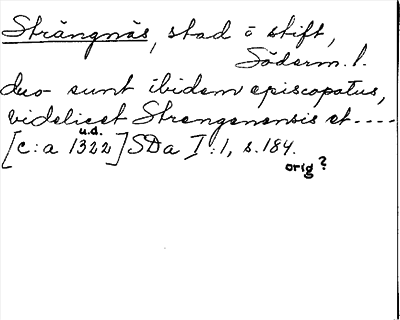 Strängnäs, stad o stift,
Söderm. l.
duo sunt ibidem episcopatus,
videlicet Strengenensis et ----
u.d.
[c:a 1322] SDa I:1, s.184.
orig?